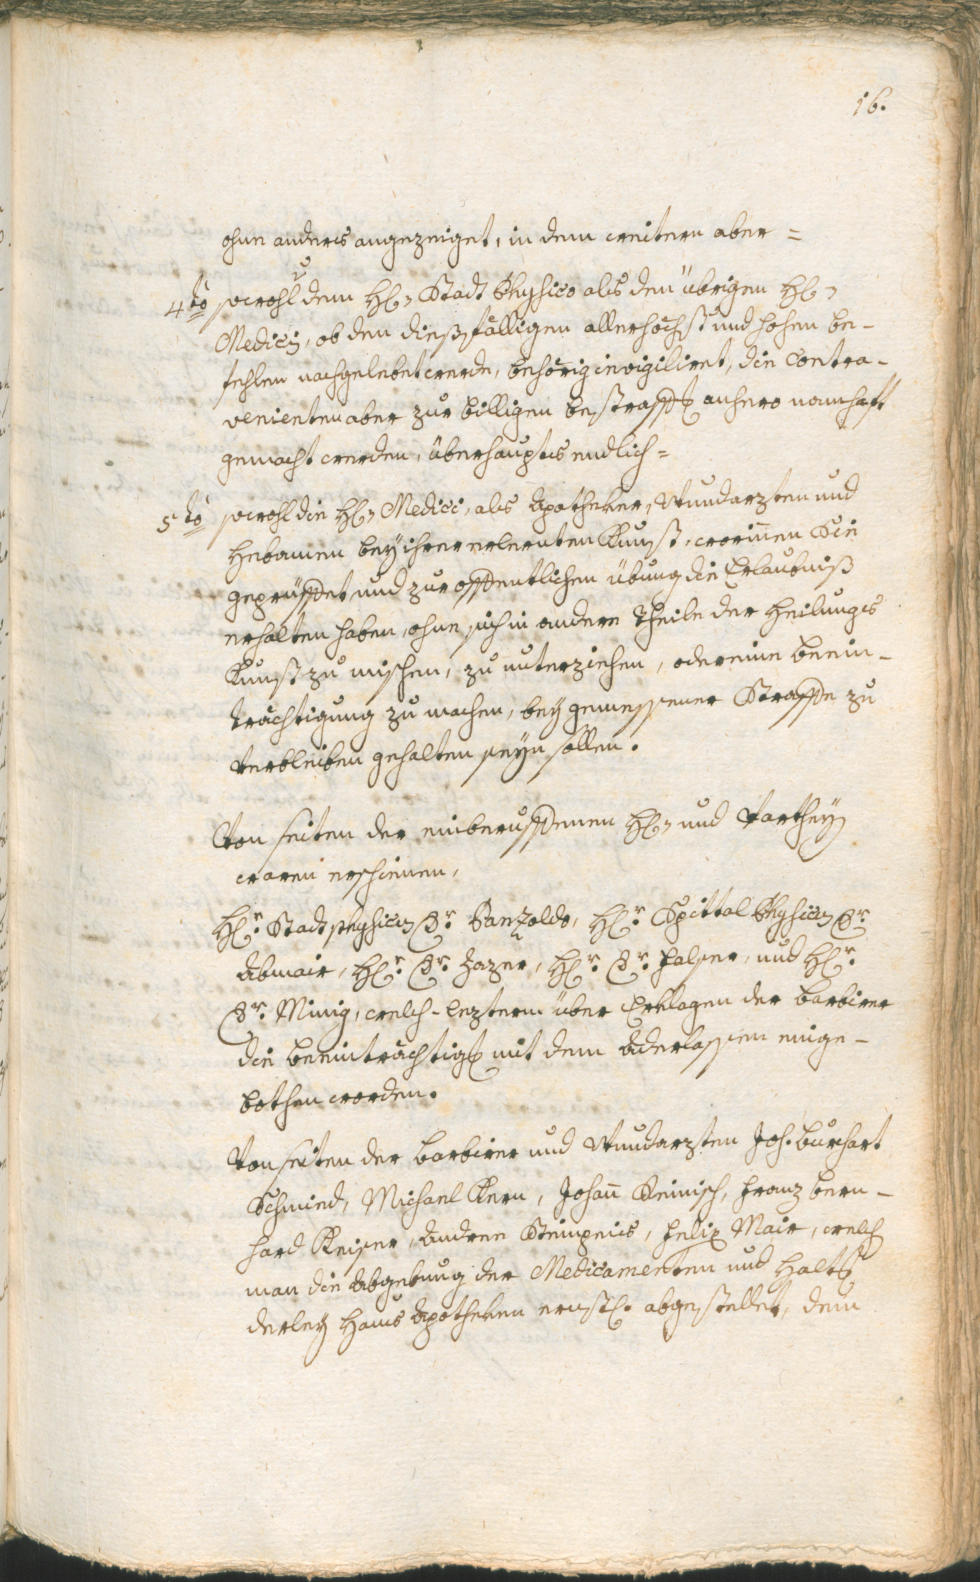 16.
ohne anders angezeiget, in dem weitern aber =
4to sowohl dem H: Stadt Physico als den übrigen H:
Medicis, ob den dießfälligen allerhöchst und hohen be-
fehlen nachgelebet werde, behörig invigiliret, die Contra-
venienten aber zur billigen bestraffg anhero namhaft
gemacht werden, überhaupts endlich =
5to sowohl die H: Medici, als Apotheker, Wundarzten und
Hebamen bey ihrer erlernten Kunst, worinnen Sie
geprüffet und zur offentlichen übung die Erlaubniß
erhalten haben, ohne sich in andere Theile der Heilungs
Kunst zu mischen, zu unterziehen, oder eine beein-
trächtigung zu machen, bey gemessener Straffe zu
verbleiben gehalten seyn sollen.
Von seiten der einberuffenen H: und Parthey
waren erschienen,
Hr. Stadtphysicus Dr. Panzoldo, Hr. Spittal Physicus Dr.
Abmair, Hr. Dr. Zazer, Hr. Dr. Falser, und Hr.
Dr. Minig, welch-leztern über Erklagen der barbirer
die beeinträchtigg mit dem Aderlassen einge-
bothen worden.
Von seiten der barbirer und Wundarzten Joh. burchart
Schmied, Michael Kern, Johañ Reinisch, Franz bern-
hard Keiser, Andree Steinpeis, Felix Mair, welch
man die Abgebung der Medicamenten und Haltg
derley Haus Apotheken ernstl. abgestellet, dem